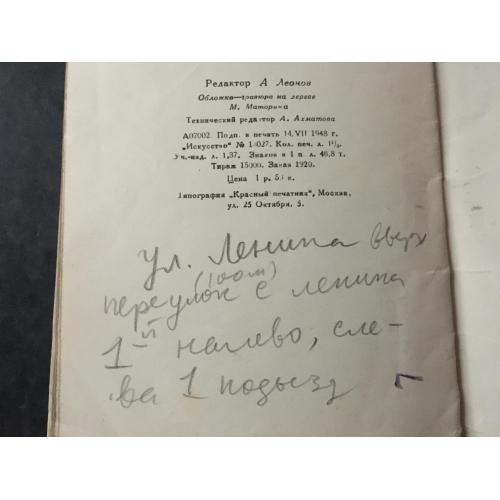 Редактор А Леонов
Обложка—гравюра на дереве
М. Маторина
Технический редактор А. Ахматова
А07002. Подп. в печать 14.VII 1948 г.
„Искусство“ № Кол. печ. л.
Уч.-изд. л. 1,37. Знаков в 1 п. л. 46,8 т.
Тираж 15000. Заказ 1920.
Цена 1 р. 50 к.
Типография „Красный печатник“, Москва,
ул. 25 Октября, 5.
ул. Ленина вверх
(100м)
переулок с ленина
1-й налево, сле-
ва 1 подьезд